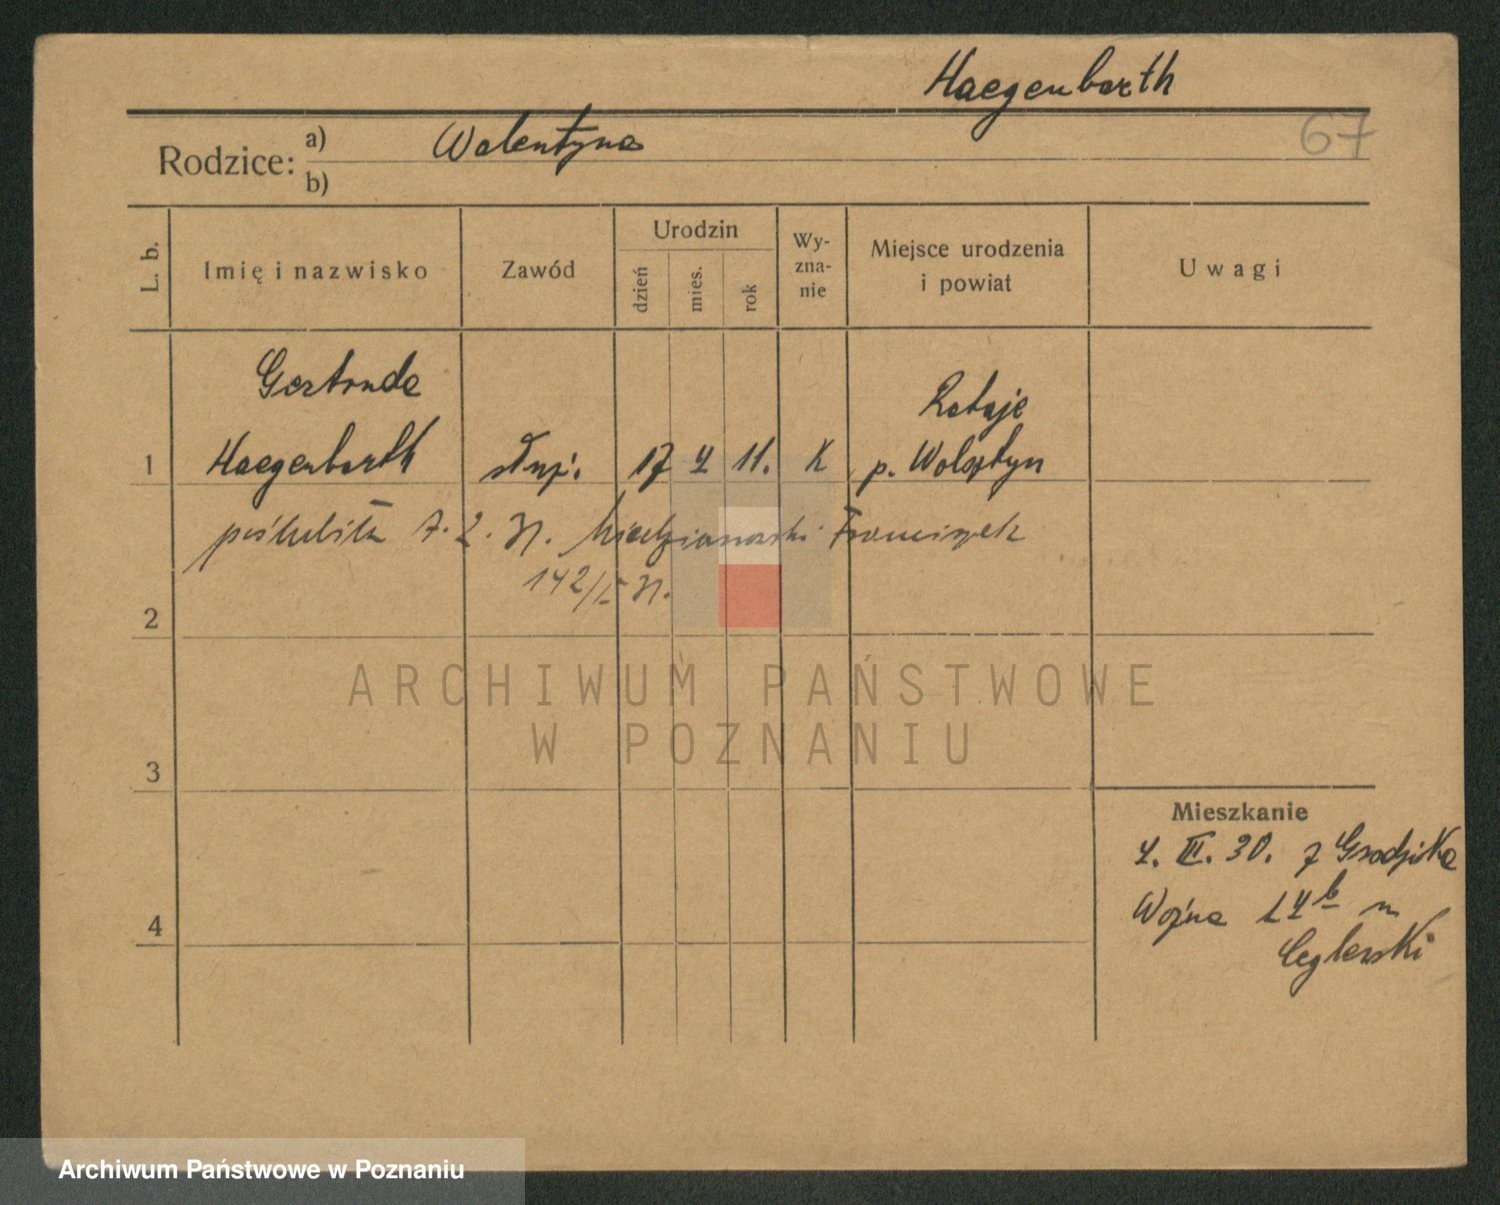 Haegenbarth
67
Rodzice: a) Walentyna
b)
L. b. Imię i nazwisko Zawód Urodzin dzień mies. rok Wy-zna-nie Miejsce urodzenia i powiat Uwagi
Gertruda Rataje
1 Haegenbarth służ. 17 4 11. K p. Wolsztyn
poślubiła 7. 2. Franciszek
142/ N.
2
ARCHIWUM PAŃSTWOWE
W POZNANIU
3
Mieszkanie
4. III. 30. z Grodziska
Wojna 14b u
4
Ceglerski
Archiwum Państwowe w Poznaniu